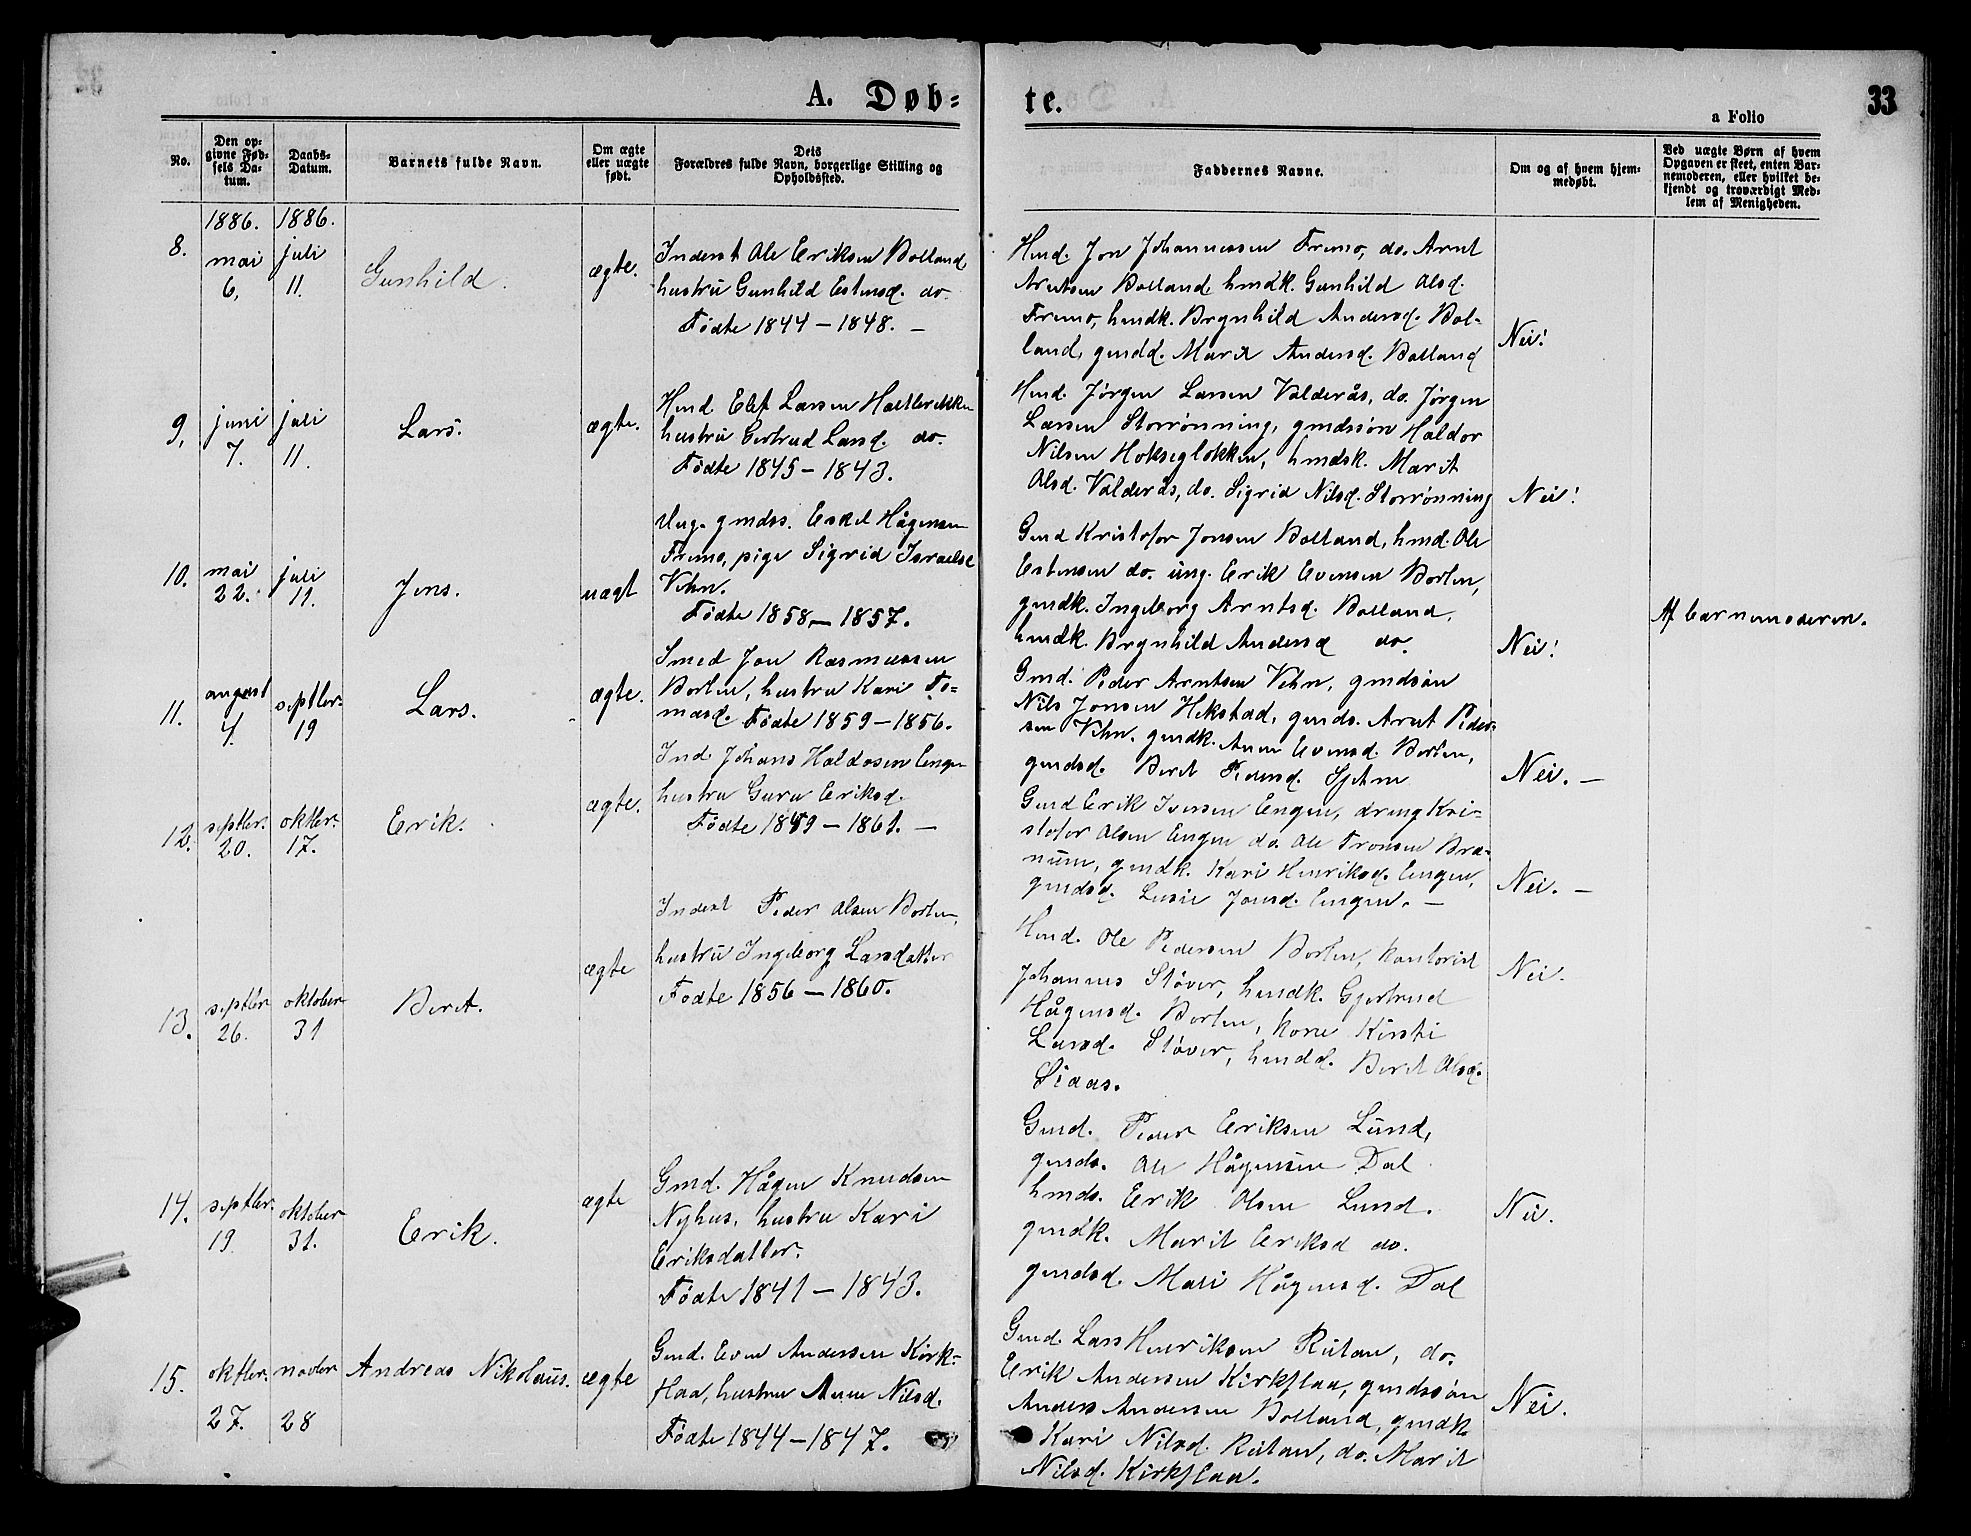 A. Døbte.
33
a Folio
No.
Den opgivne Fødsels Datum.
Daabs-Datum.
Barnets fulde Navn.
Om ægte eller uægte født.
Dets Forældres fulde Navn, borgerlige Stilling og Opholdssted.
Faddernes Navne.
Om og af hvem hjemmedøbt.
Ved uægte Børn af hvem Opgaven er skeet, enten Barnemoderen, eller hvilket bekjendt og troværdigt Medlem af Menigheden.
1886. 1886.
8.
mai 6,
juli 11.
Gunhild.
ægte.
Inderst Ole Eriksen Bolland
hustru Gunhild Estensd. do.
Fødte 1844 – 1848. –
Hmd. Jon Johannessen Fremo, do. Arnt
Arntsen Bolland, hmdk. Gunhild Olsd.
Fremo, hmdk. Brynhild Andersd. Bol-
land, gmdd. Marit Andersd. Bolland
Nei!
9,
juni 7.
juli 11.
Lars.
ægte.
Hmd. Elef Larsen
hustru Gertrud Larsd. do.
Fødte 1845 – 1843.
Hmd. Jørgen Larsen Valderås, do. Jørgen
Larsen Storrønning, gmdssøn Haldor
Nilsen Hoksegløkken, hmdsk. Marit
Olsd. Valderås, do. Sigrid Nilsd. Storrønning
Nei!
10.
mai 22.
juli 11.
Jens.
uægt
Ung. gmdss. Eskel Hågensen
Fremo, pige Sigrid Israelsd
Vehn.
Fødte 1858, – 1857.
Gmd Kristofor Jonsen Bolland, hmd. Ole
Estensen do. ung. Erik Evensen Borten,
gmdk. Ingeborg Arntsd. Bolland,
hmdk. Brynhild Andersd do.
Nei!
Af barnemoderen.
11.
august 4.
septbr. 19
Lars.
ægte.
Smed Jon Rasmussen
Borten, hustru Kari To-
masd. Fødte 1859 – 1856.
Gmd. Peder Arntsen Vehn, gmdsøn
Nils Jonsen Hekstad, gmds. Arnt Peder-
sen Vehn. gmdk. Anne Evensd. Borten,
gmdsd. Berit Pedersd. Sjetne
Nei. –
12.
septbr. 20.
oktbr. 17.
Erik.
ægte.
Ind. Johans Haldosen Engen
hustru Guru Eriksd.
Fødte 1859 – 1861. –
Gmd Erik Iversen Engen, dreng Kri-
stofor Olsen Engen do. Ole Tronsen Bræ-
num, gmdk. Kari Henriksd. Engen,
gmdsd. Lusie Jonsd. Engen. –
Nei. –
13.
septbr 26.
oktober 31
Berit.
ægte
Inderst Peder Olsen Borten,
hustru Ingeborg Larsdatter
Fødte 1856 – 1860.
Hmd. Ole Pedersen Borten, kantorist
Johannes Støver, hmdk. Gjertrud
Hågensd. Borten, kone Kirsti
Larsd. Støver, hmdd. Berit Olsd.
Siaas.
Nei.
14.
septbr. 19
oktober 31.
Erik.
ægte
Gmd. Hågen Knudsen
Nyhus, hustru Kari
Eriksdatter.
Fødte 1841 – 1843.
Gmd. Peder Eriksen Lund,
gmds. Ole Hågensen Dal
hmds. Erik Olsen Lund.
gmdk. Marit Eriksd do.
gmdsd. Mali Hågensd. Dal
Nei.
15.
oktbr. 27.
novbr 28
Andreas Nikolaus.
ægte
Gmd. Even Andersen Kirk-
flaa, hustru Anne Nilsd.
Fødte 1844 – 1847.
Gmd. Lars Henriksen Rutan, do.
Erik Andersen Kirkflaa, gmdssøn
Anders Andersen Bolland, gmdk
Kari Nilsd. Rutan, do. Marit
Nilsd. Kirkflaa.
Nei.